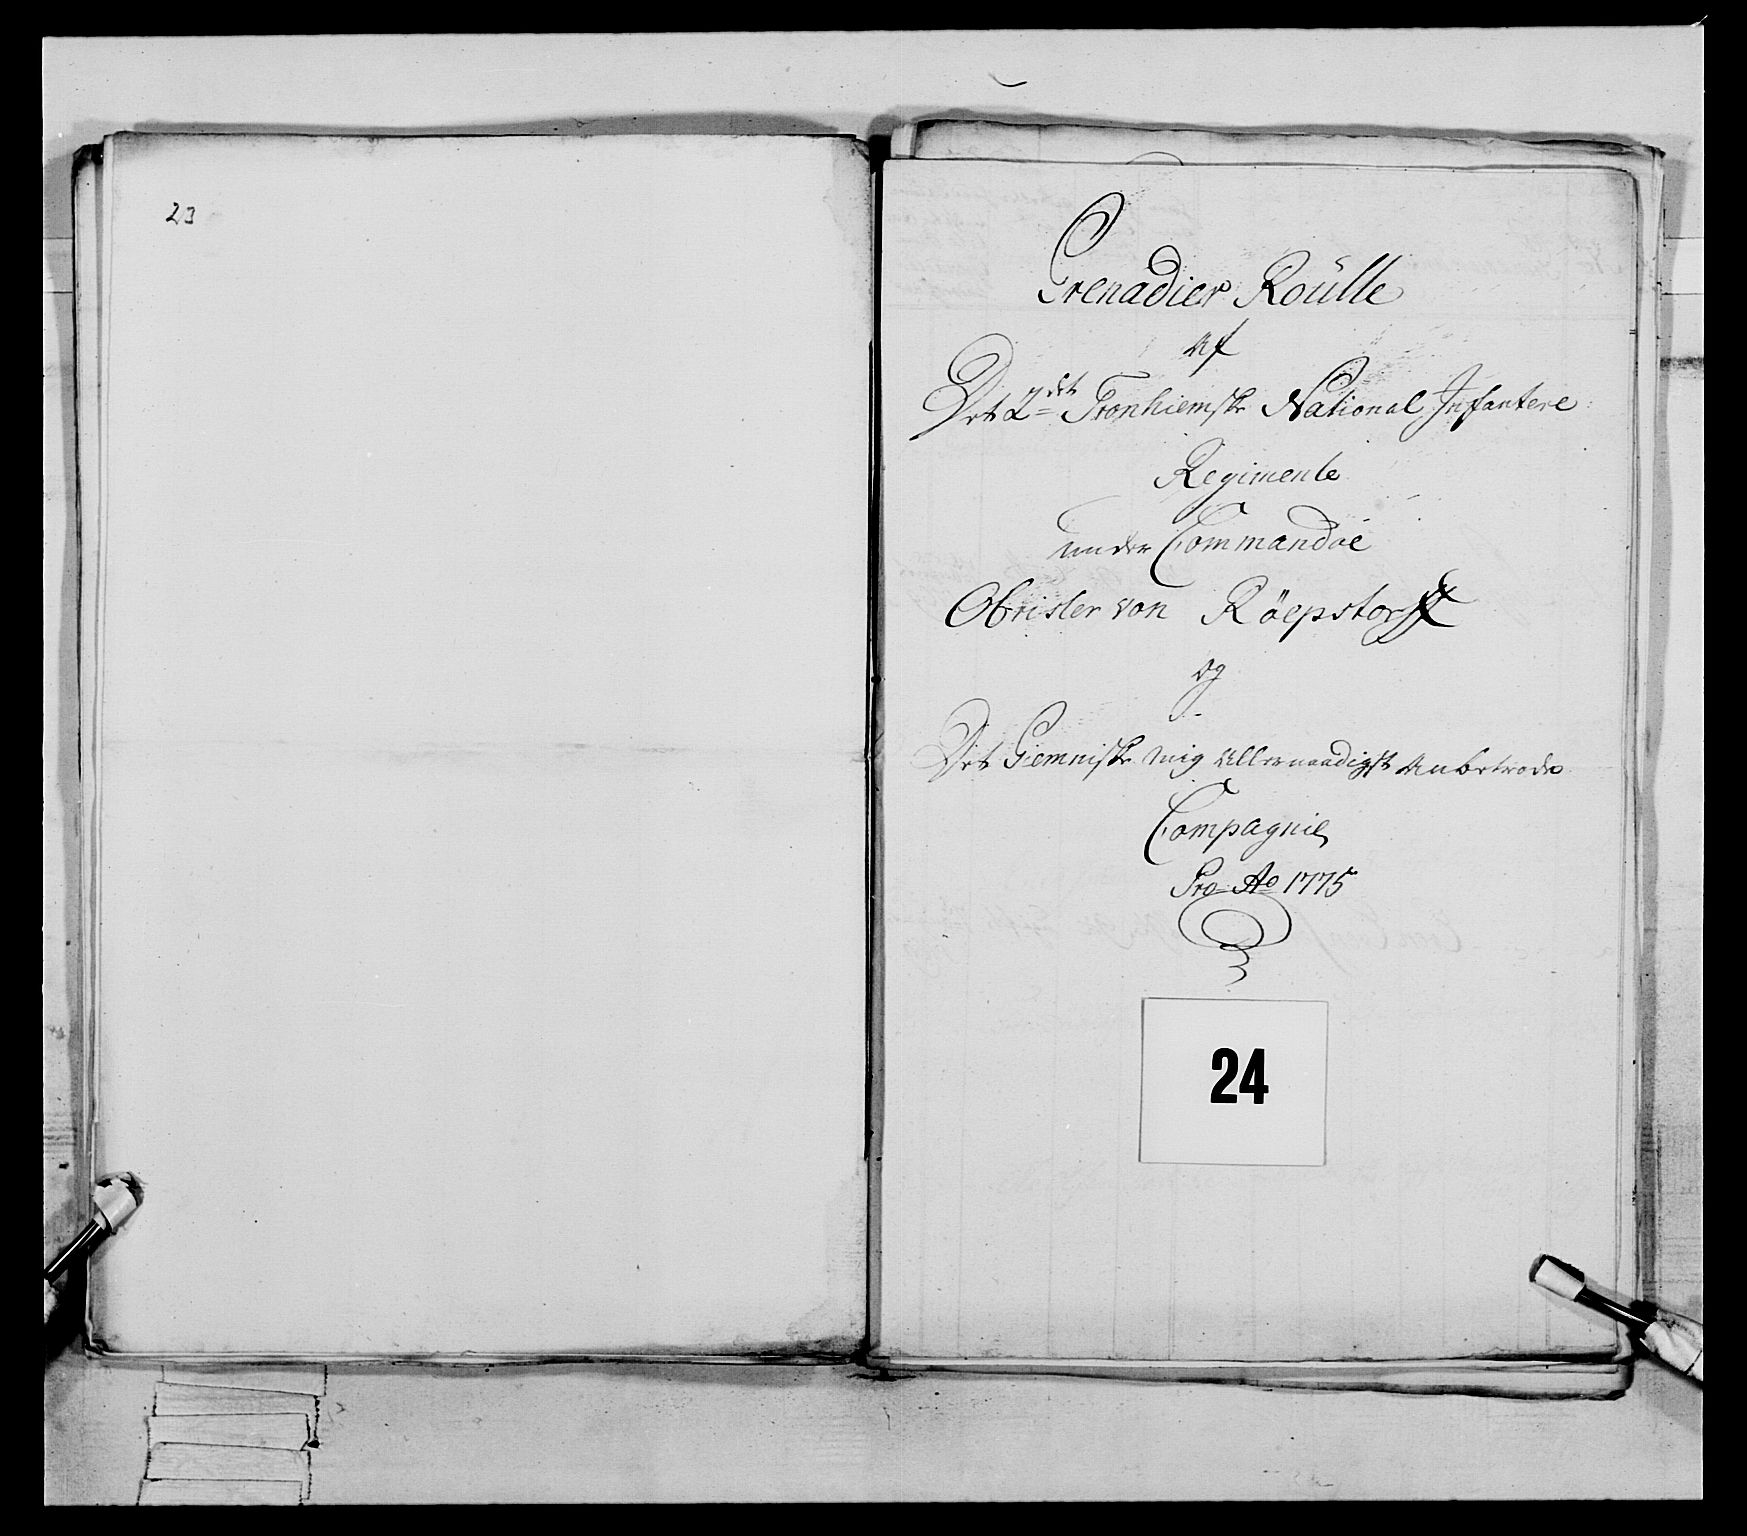 23
Grenadier Roülle
Af
Det 2det Tronhiemske National Infanterie
Regimente
under Commandoe
Obrister von Röepstorff
og
Det Giemniske mig allernaadigst anbetroede
Compagnie
Pro Ao 1775
24